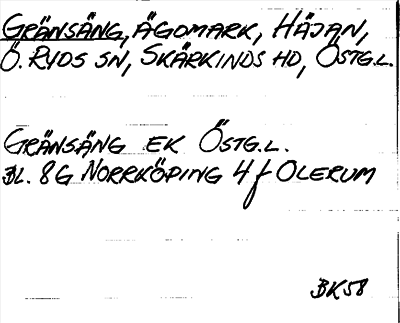 GRÄNSÄNG, ÄGOMARK, HÄJAN,
Ö. RYDS SN, SKÄRKINDS HD, ÖSTG.L.
GRÄNSÄNG EK ÖSTG.L.
BL. 8G NORRKÖPING 4 f OLERUM
BK58